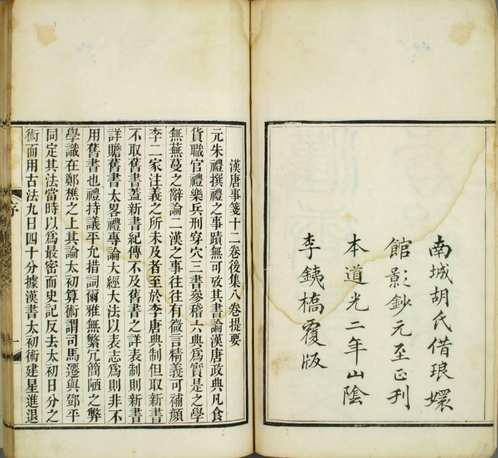 南城胡氏借琅嬛
館影鈔元至正刊
本道光二年山陰
李銕橋覆版
漢唐事箋十二卷後集八卷提要
元朱禮撰禮之事蹟無可攷其書論詳漢唐政典凡食
貨職官禮樂兵刑穿穴三書參稽六典爲實是之學
無蕪蔓之辭論二漢之事往往有微言精義可補顔
李二家注義之所未及者至於李唐典制但取新書
不取舊書蓋新書紀傳不及舊書詳表志則新書
詳贍舊書太畧禮專論大經大法以表志爲則非不
用舊書也禮持議平允措詞爾雅無繁冗簡陋之弊
學識在鄭樵之上其論太初算術謂司馬遷與鄧平
同定其法當時以爲最密而史記反去太初日分之
術而用古法九日四十分據漢書太初術建星進退
序
一